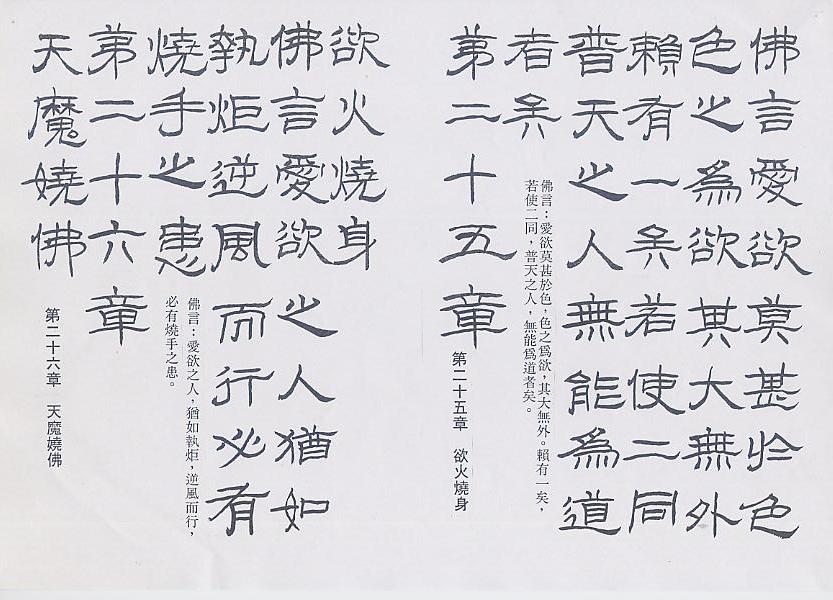 佛言愛欲莫甚於色
色之為欲其大無外
賴有一矣若使二同
普天之人無能為道
者矣
佛言：愛欲莫甚於色，色之爲欲，其大無外。賴有一矣，
若使二同，普天之人，無能爲道者矣。
第二十五章
第二十五章　欲火燒身
欲火燒身
佛言愛欲之人猶如
執炬逆風而行必有
燒手之患
佛言：愛欲之人，猶如執炬，逆風而行，
必有燒手之患。
第二十六章
天魔嬈佛
第二十六章　天魔嬈佛